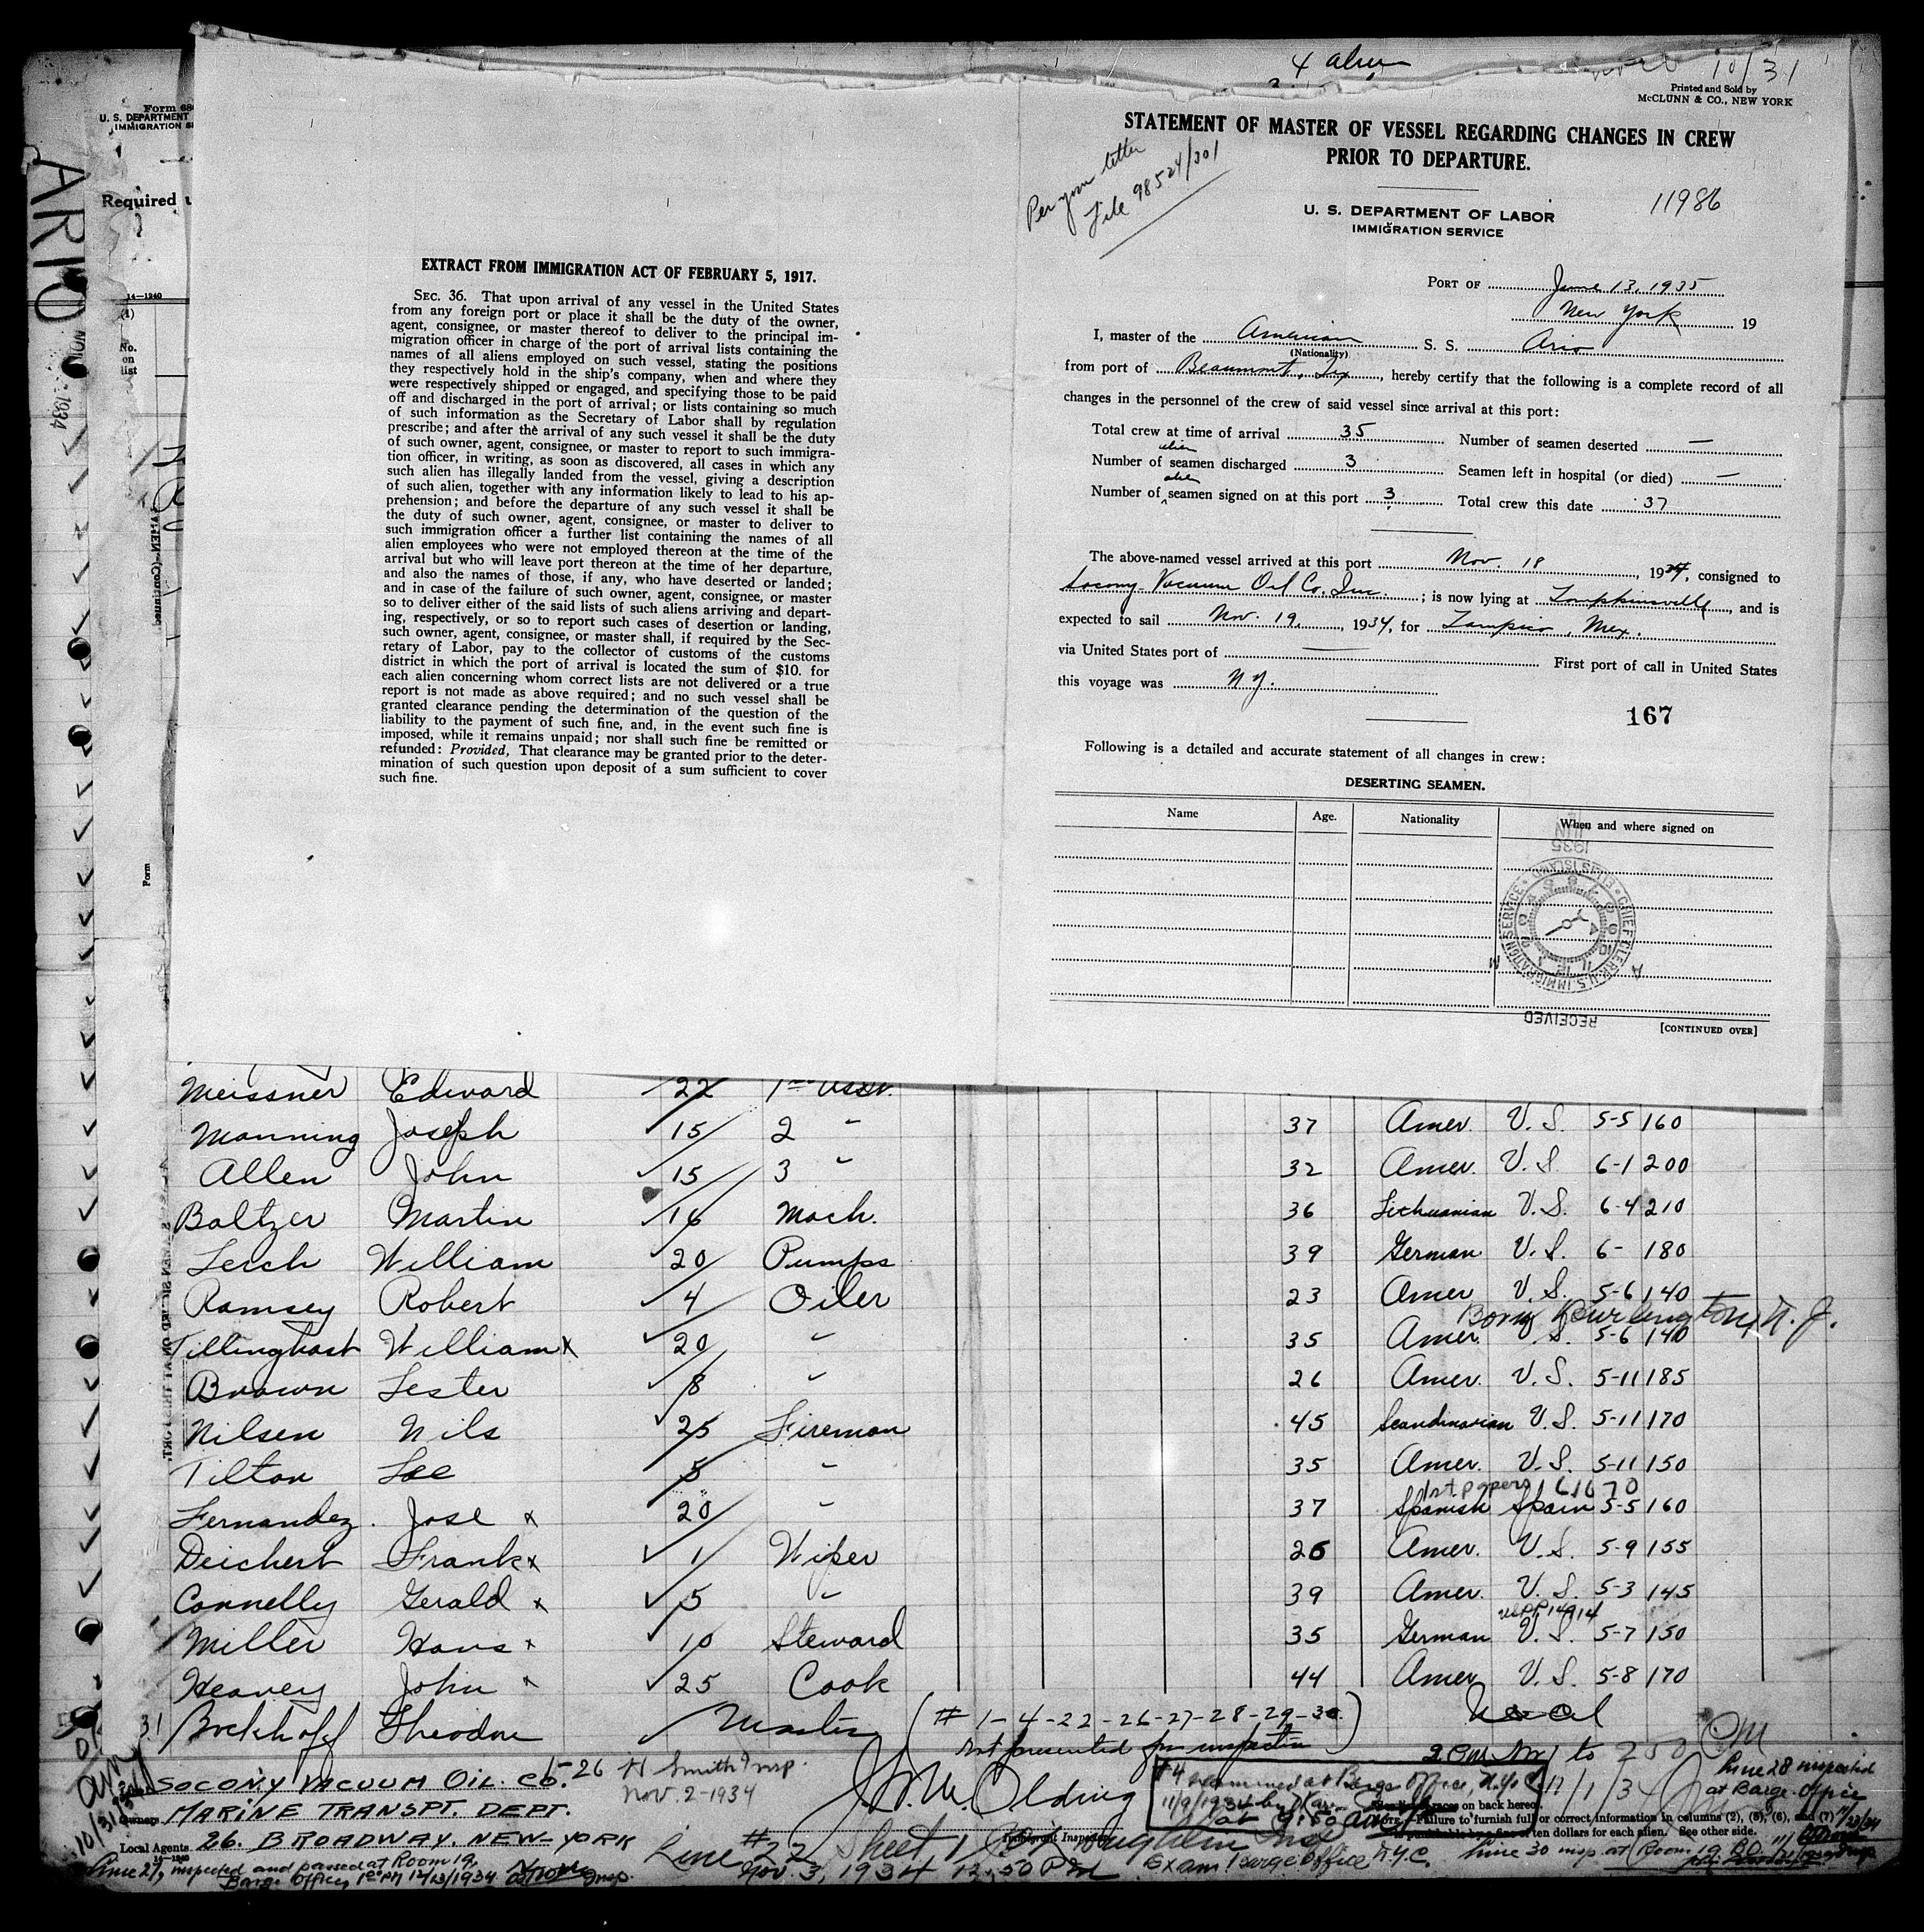 4 alien
10/31
Printed and Sold by
McCLUNN & CO., NEW YORK
Form 68
U. S. DEPARTMENT
IMMIGRATION S
Required u
ARIO
14—1240
(1)
No.
on
list
Form
EXTRACT FROM IMMIGRATION ACT OF FEBRUARY 5, 1917.
SEC. 36. That upon arrival of any vessel in the United States
from any foreign port or place it shall be the duty of the owner,
agent, consignee, or master thereof to deliver to the principal im-
migration officer in charge of the port of arrival lists containing the
names of all aliens employed on such vessel, stating the positions
they respectively hold in the ship's company, when and where they
were respectively shipped or engaged, and specifying those to be paid
off and discharged in the port of arrival; or lists containing so much
of such information as the Secretary of Labor shall by regulation
prescribe; and after the arrival of any such vessel it shall be the duty
of such owner, agent, consignee, or master to report to such immigra-
tion officer, in writing, as soon as discovered, all cases in which any
such alien has illegally landed from the vessel, giving a description
of such alien, together with any information likely to lead to his ap-
prehension; and before the departure of any such vessel it shall be
the duty of such owner, agent, consignee, or master to deliver to
such immigration officer a further list containing the names of all
alien employees who were not employed thereon at the time of the
arrival but who will leave port thereon at the time of her departure,
and also the names of those, if any, who have deserted or landed;
and in case of the failure of such owner, agent, consignee, or master
so to deliver either of the said lists of such aliens arriving and depart-
ing, respectively, or so to report such cases of desertion or landing,
such owner, agent, consignee, or master shall, if required by the Sec-
retary of Labor, pay to the collector of customs of the customs
district in which the port of arrival is located the sum of $10. for
each alien concerning whom correct lists are not delivered or a true
report is not made as above required; and no such vessel shall be
granted clearance pending the determination of the question of the
liability to the payment of such fine, and, in the event such fine is
imposed, while it remains unpaid; nor shall such fine be remitted or
refunded: Provided, That clearance may be granted prior to the deter-
mination of such question upon deposit of a sum sufficient to cover
such fine.
STATEMENT OF MASTER OF VESSEL REGARDING CHANGES IN CREW
PRIOR TO DEPARTURE.
Per your letter
File 98524/301
U. S. DEPARTMENT OF LABOR
IMMIGRATION SERVICE
11986
PORT OF June 13, 1935
New York 19
I, master of the American S. S. Ario
(Nationality)
from port of Beaumont, Tex, hereby certify that the following is a complete record of all
changes in the personnel of the crew of said vessel since arrival at this port:
Total crew at time of arrival 35 Number of seamen deserted —
alien
Number of seamen discharged 3 Seamen left in hospital (or died) —
alien
Number of seamen signed on at this port 3 Total crew this date 37
The above-named vessel arrived at this port Nov. 18, 1934, consigned to
Socony-Vacuum Oil Co. Inc.; is now lying at Tompkinsville, and is
expected to sail Nov. 19, 1934, for Tampico, Mex.
via United States port of — First port of call in United States
this voyage was N.Y.
167
Following is a detailed and accurate statement of all changes in crew:
DESERTING SEAMEN.
Name Age. Nationality When and where signed on
JUN 1935
CHIEF CLERK U.S. IMMIGRATION SERVICE ELLIS ISLAND
A M
RECEIVED
[CONTINUED OVER]
Meissner Edward 22 1st Asst.
Manning Joseph 15 2 " 37 Amer. U.S. 5-5 160
Allen John 15 3 " 32 Amer. U.S. 6-1 200
Baltzer Martin 16 Mach. 36 Lithuanian U.S. 6-4 210
Leich William 20 Pumps 39 German U.S. 6- 180
Ramsey Robert 4 Oiler 23 Amer U.S. 5-6 140
Born Burlington, N.J.
Tillinghast William x 20 " 35 Amer. U.S. 5-6 140
Brown Lester 8 " 26 Amer. U.S. 5-11 185
Nilsen Nils 25 Fireman 45 Scandinavian U.S. 5-11 170
Tilton Lee 5 " 35 Amer. U.S. 5-11 150
1st papers 161670
Fernandez Jose x 20 " 37 Spanish Spain 5-5 160
Deichert Frank x 1 Wiper 26 Amer. U.S. 5-9 155
Connelly Gerald x 5 " 39 Amer. U.S. 5-3 145
Miller Hans x 10 Steward 35 German U.S. 5-7 150
Heavey John x 25 Cook 44 Amer U.S. 5-8 170
31 Bockhoff Theodore Master
(# 1-4-22-26-27-28-29-30)
Not presented for inspection
1-26 H Smith Insp.
Nov. 2-1934
Owners SOCONY VACUUM OIL. CO.
MARINE TRANSPT. DEPT.
Local Agents 26. BROADWAY. NEW-YORK
14—1240
J. W. M. Olding
Immigrant Inspector
#4 examined at Barge Office, N.Y.C.
11/9/1934
at 9:50 AM
11/1/34
Line 28 inspected
at Barge Office
on back hereof.
NOTE.—Failure to furnish full or correct information in columns (2), (5), (6), and (7)
is punishable by a fine of ten dollars for each alien. See other side.
Line #22 Sheet 1
Nov. 3, 1934 12.50 PM Exam Barge Office N.Y.C.
Line 27, inspected and passed at Room 19,
Barge Office,
Line 30 insp at Room 19 B.O.